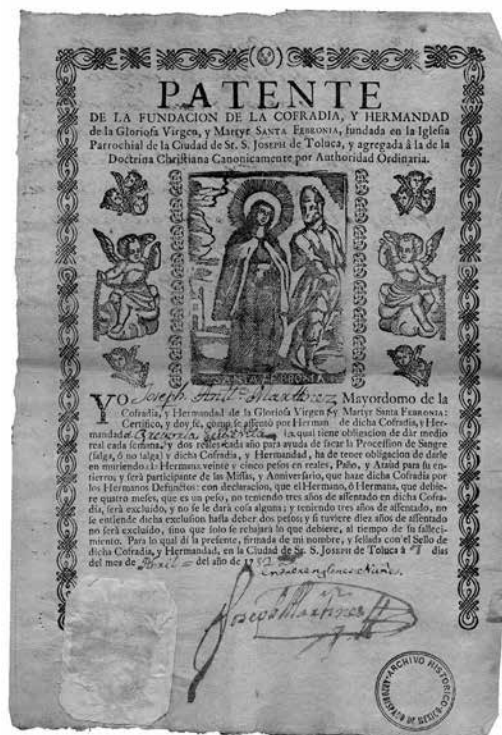 PATENTE
DE LA FUNDACION DE LA COFRADIA, Y HERMANDAD
de la Gloriosa Virgen, y Martyr SANTA FEBRONIA, fundada en la Iglesia
Parrochial de la Ciudad de Sr. S. JOSEPH de Toluca, y agregada à la de la
Doctrina Christiana Canonicamente por Authoridad Ordinaria.
SANTA FEBRONIA
YO Joseph Anttº Martinez Mayordomo de la
Cofradia, y Hermandad de la Gloriosa Virgen y Martyr Santa FEBRONIA:
Certifico, y doy fé, como se assentó por Herman de dicha Cofradia, y Her-
mandad Gregoria la qual tiene obligacion de dàr medio
real cada semana, y dos reales cada año para ayuda de sacar la Procession de Sangre
(salga, ò no salga) y dicha Cofradia, y Hermandad, ha de tener obligacion de darle
en muriendo à la Hermana veinte y cinco pesos en reales, Paño, y Ataud para su en-
tierro; y serà participante de las Missas, y Anniversario, que haze dicha Cofradia por
los Hermanos Defunctos: con declaracion, que el Hermano, ò Hermana, que debie-
re quatro meses, que es un peso, no teniendo tres años de assentado en dicha Cofra-
dia, serà excluido, y no se le darà cosa alguna; y teniendo tres años de assentado, no
se entiende dicha exclusion hasta deber dos pesos; y si tuviere diez años de assentado
no serà excluido, sino que solo se rebajarà lo que debiere, al tiempo de su falleci-
miento. Para lo qual di la presente, firmada de mi nombre, y sellada con el Sello de
dicha Cofradia, y Hermandad, en la Ciudad de Sr. S. JOSEPH de Toluca à dias
del mes de Abril del año de 17
Joseph Martinez
ARCHIVO HISTORICO
ARZOBISPADO DE MEXICO